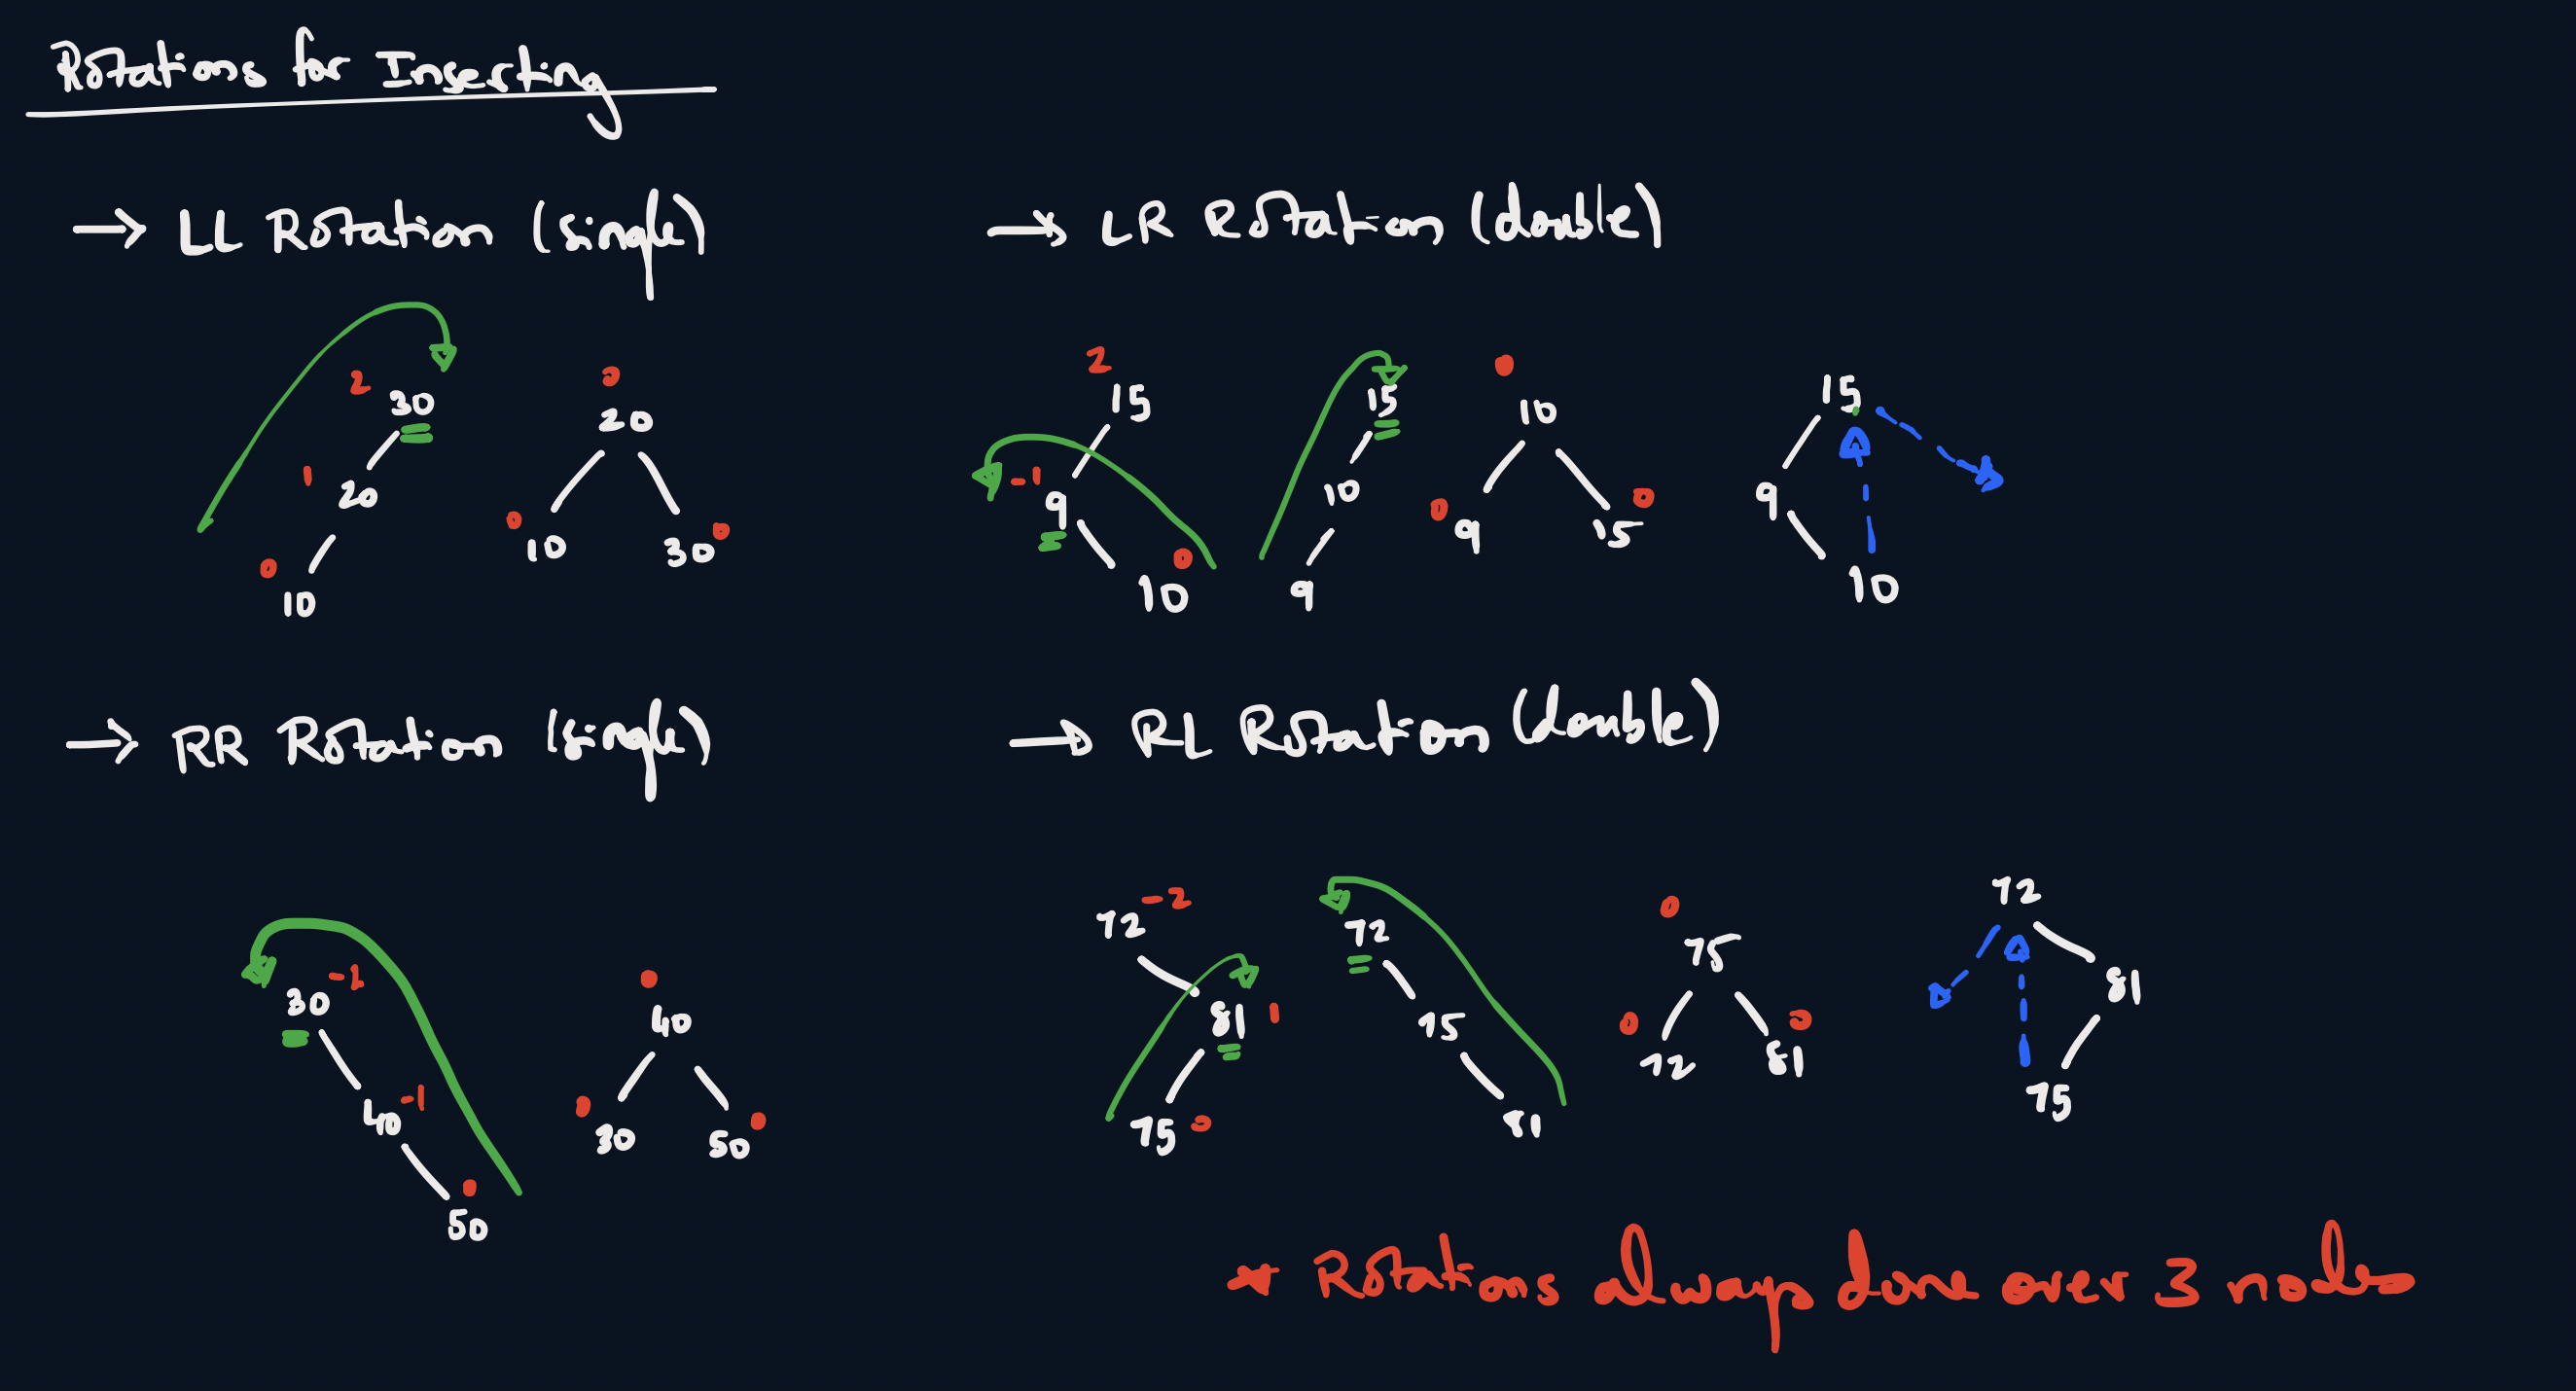 Rotations for Inserting
→ LL Rotation (single)
2
30
1
20
0
10
0
20
0
10
30
0
→ LR Rotation (double)
2
15
-1
9
0
10
15
10
9
0
10
0
9
0
15
15
9
10
→ RR Rotation (single)
30 -1
40 -1
0
50
0
40
0
30
0
50
→ RL Rotation (double)
72 -2
81 1
75 0
72
75
81
0
75
0
72
0
81
72
81
75
* Rotations always done over 3 nodes